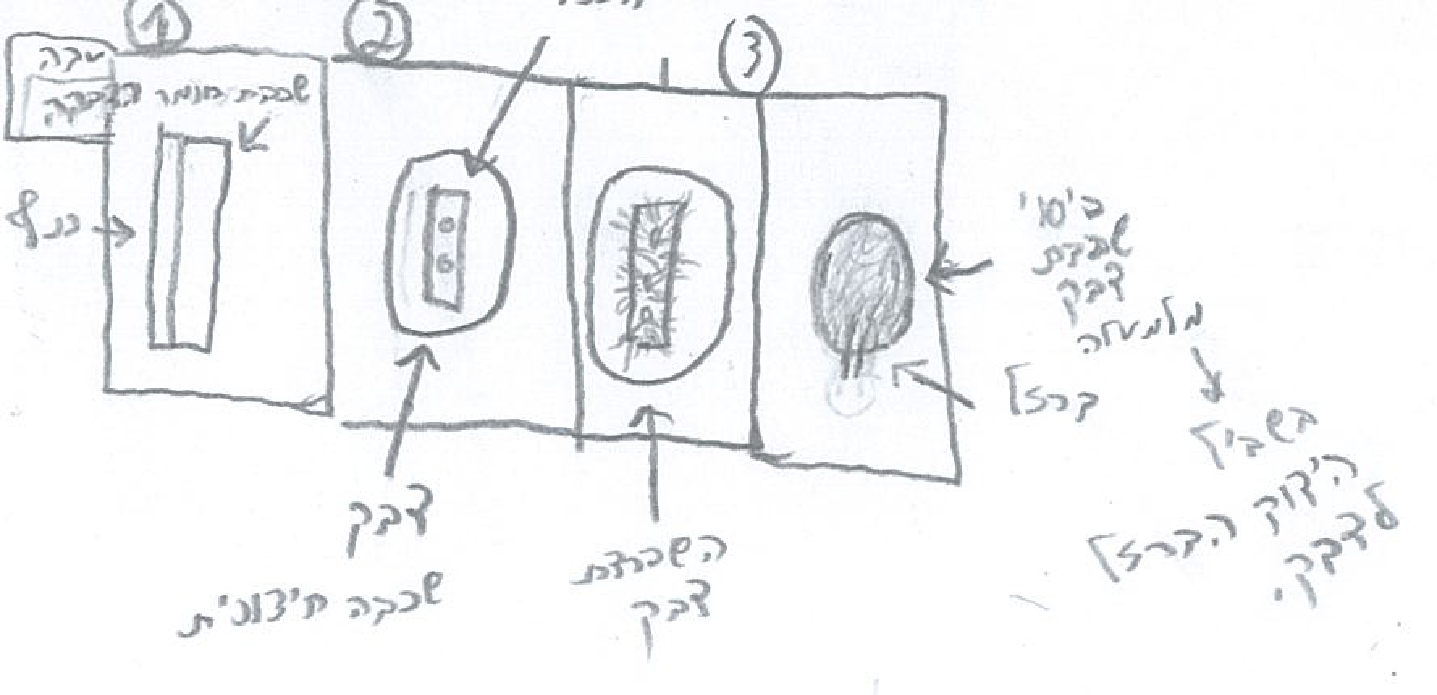 ①
②
③
שכבה
שכבת חומר הדבקה
כנף
דבק
שכבה חיצונית
השכבת
דבק
כיסוי
שכבת
דבק
מלמעלה
ברזל
בשביל
הידוק הברזל
לדבק.